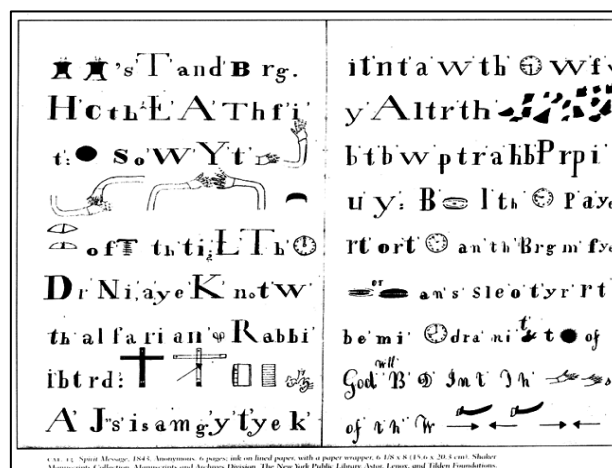 's T and B rg.
H c th E A Th f i
t: s o W Y t
of th ti L Th
D r N i, a y e K n o t w
th al f a r i a n R a b b i
i b t r d:
A J s i s a m g y t y e k
i t n t a w t h w f
y A l t r t h
b t b w p t r a h b P r p i
u y: B l th P a y e
r t o r t a n t h B r g m f y
or
a n s s l e o t y r r t
b e m i d r a n i t t of
will
God B D I n t I h
of t h W
CAT. 13 Spirit Message, 1843. Anonymous. 6 pages; ink on lined paper, with a paper wrapper, 6 1/8 x 8 (15.6 x 20.3 cm). Shaker
Manuscripts Collection, Manuscripts and Archives Division, The New York Public Library, Astor, Lenox, and Tilden Foundations.